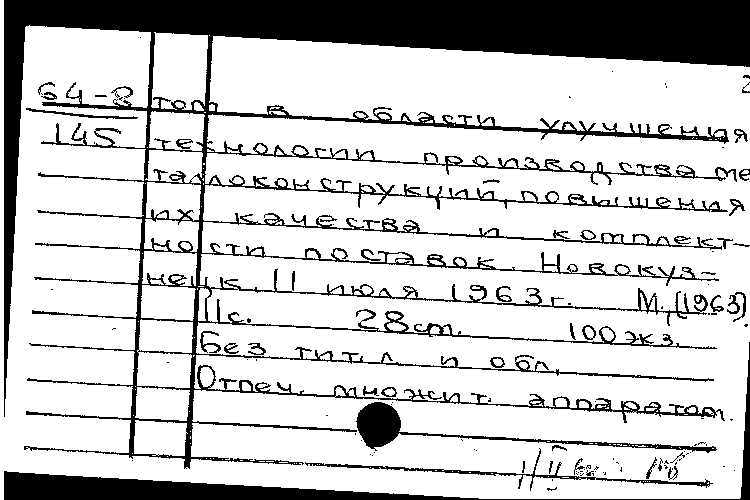 2
64-8 том в области улучшения
145 технологии производства ме
таллоконструкций, повышения
их качества и комплект-
ности поставок. Новокуз=
нецк. 11 июля 1963г. М., [1963].
11с. 28см. 100экз.
Без тит. л. и обл.
Отпеч. множит. аппаратом.